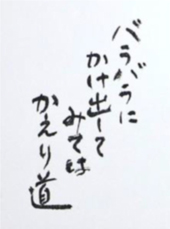 バラバラに
かけ出して
みては
かえり道